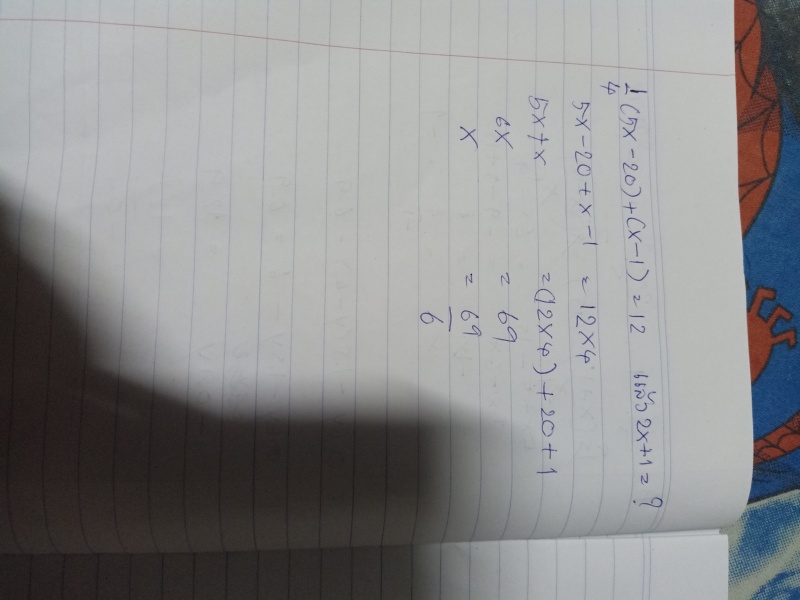 1/4 (5x-20)+(x-1) = 12 แล้ว 2x+1 = ?
5x-20+x-1 = 12x4
5x+x = (12x4)+20+1
6x = 69
x = 69/6